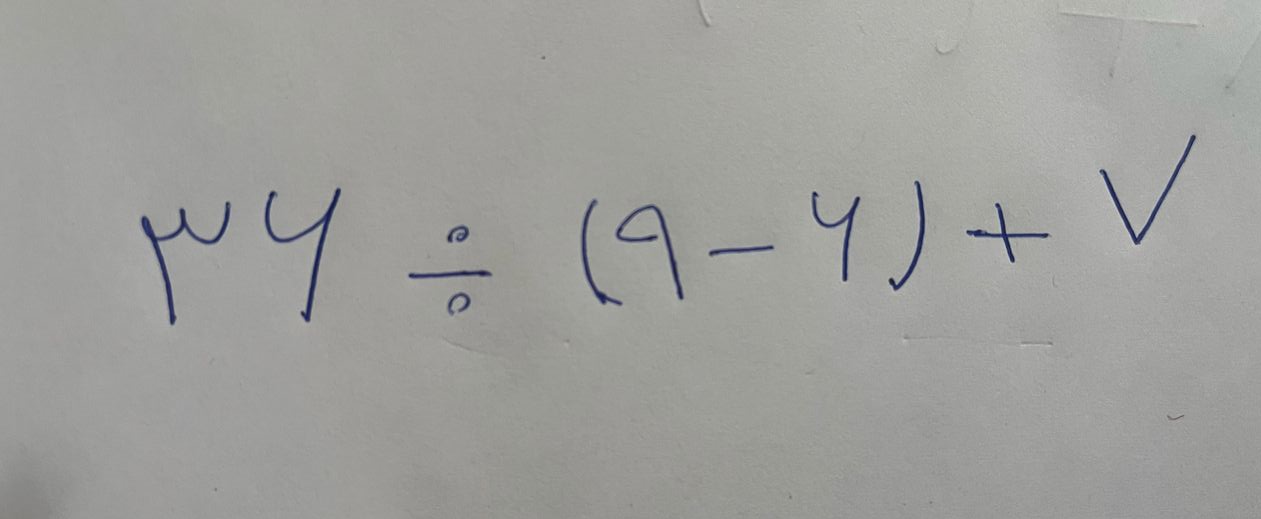 ۳۶ ÷ (۹ - ۶) + ۷